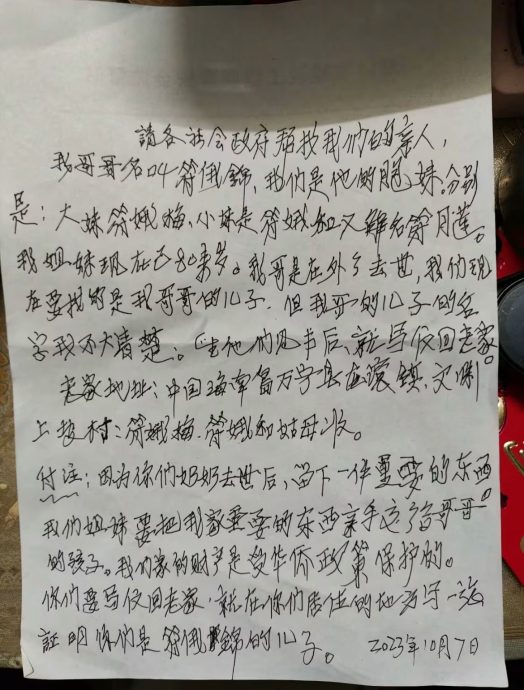 請各社会政府帮找我们的亲人，
我哥哥名叫符俄錦，我们是他的胞妹分别
是：大妹符娥梅，小妹是符娥和又解名符月莲。
我姐妹现在已80来岁。我哥是在外了去世，我们现
在要找的是我哥哥的儿子，但我哥的儿子的名
字我不大清楚。他们见字后，就写信回老家。
老家地址：中国海南省万宁县 镇，文
上 村：符娥梅、符娥和姑母收。
付注：因为你们奶奶去世后，留下一件重要的东西。
我们姐妹要把我家重要的东西亲手交给哥哥
的孩子。我们家的财产是受华侨政策保护的。
你们要写信回老家，就在你们居住的地方写一张
証明你们是符俄錦的儿子。 2023年10月7日